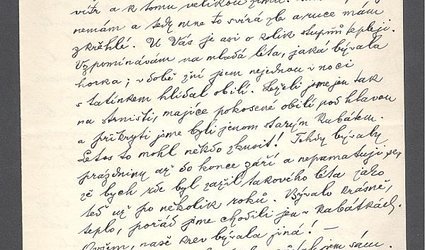 vítr a k tomu velikou zimu.
nemám a teď mne to svírá zle a ruce mám
zkřehlé. U Vás je asi o kolik stupňů lépeji.
Vzpomínávám na mladá léta, jaká bývala
horka; v době žní jsem nejednou v noci
s tatínkem hlídal obilí. Leželi jsme jen tak
na strništi, majíce pokosené obilí pod hlavou
a přikryti jsme byli jenom starým kabátkem.
Letos to mohl někdo zkusit! Tehdy bývaly
prázdniny už do konce září a nepamatuji se,
že bych kde byl zažil takového léta jako
teď už po několik roků. Bývalo krásné,
teplo, pořád jsme chodili jen v kabátkách.
Ovšem, naše krev bývala jiná! –